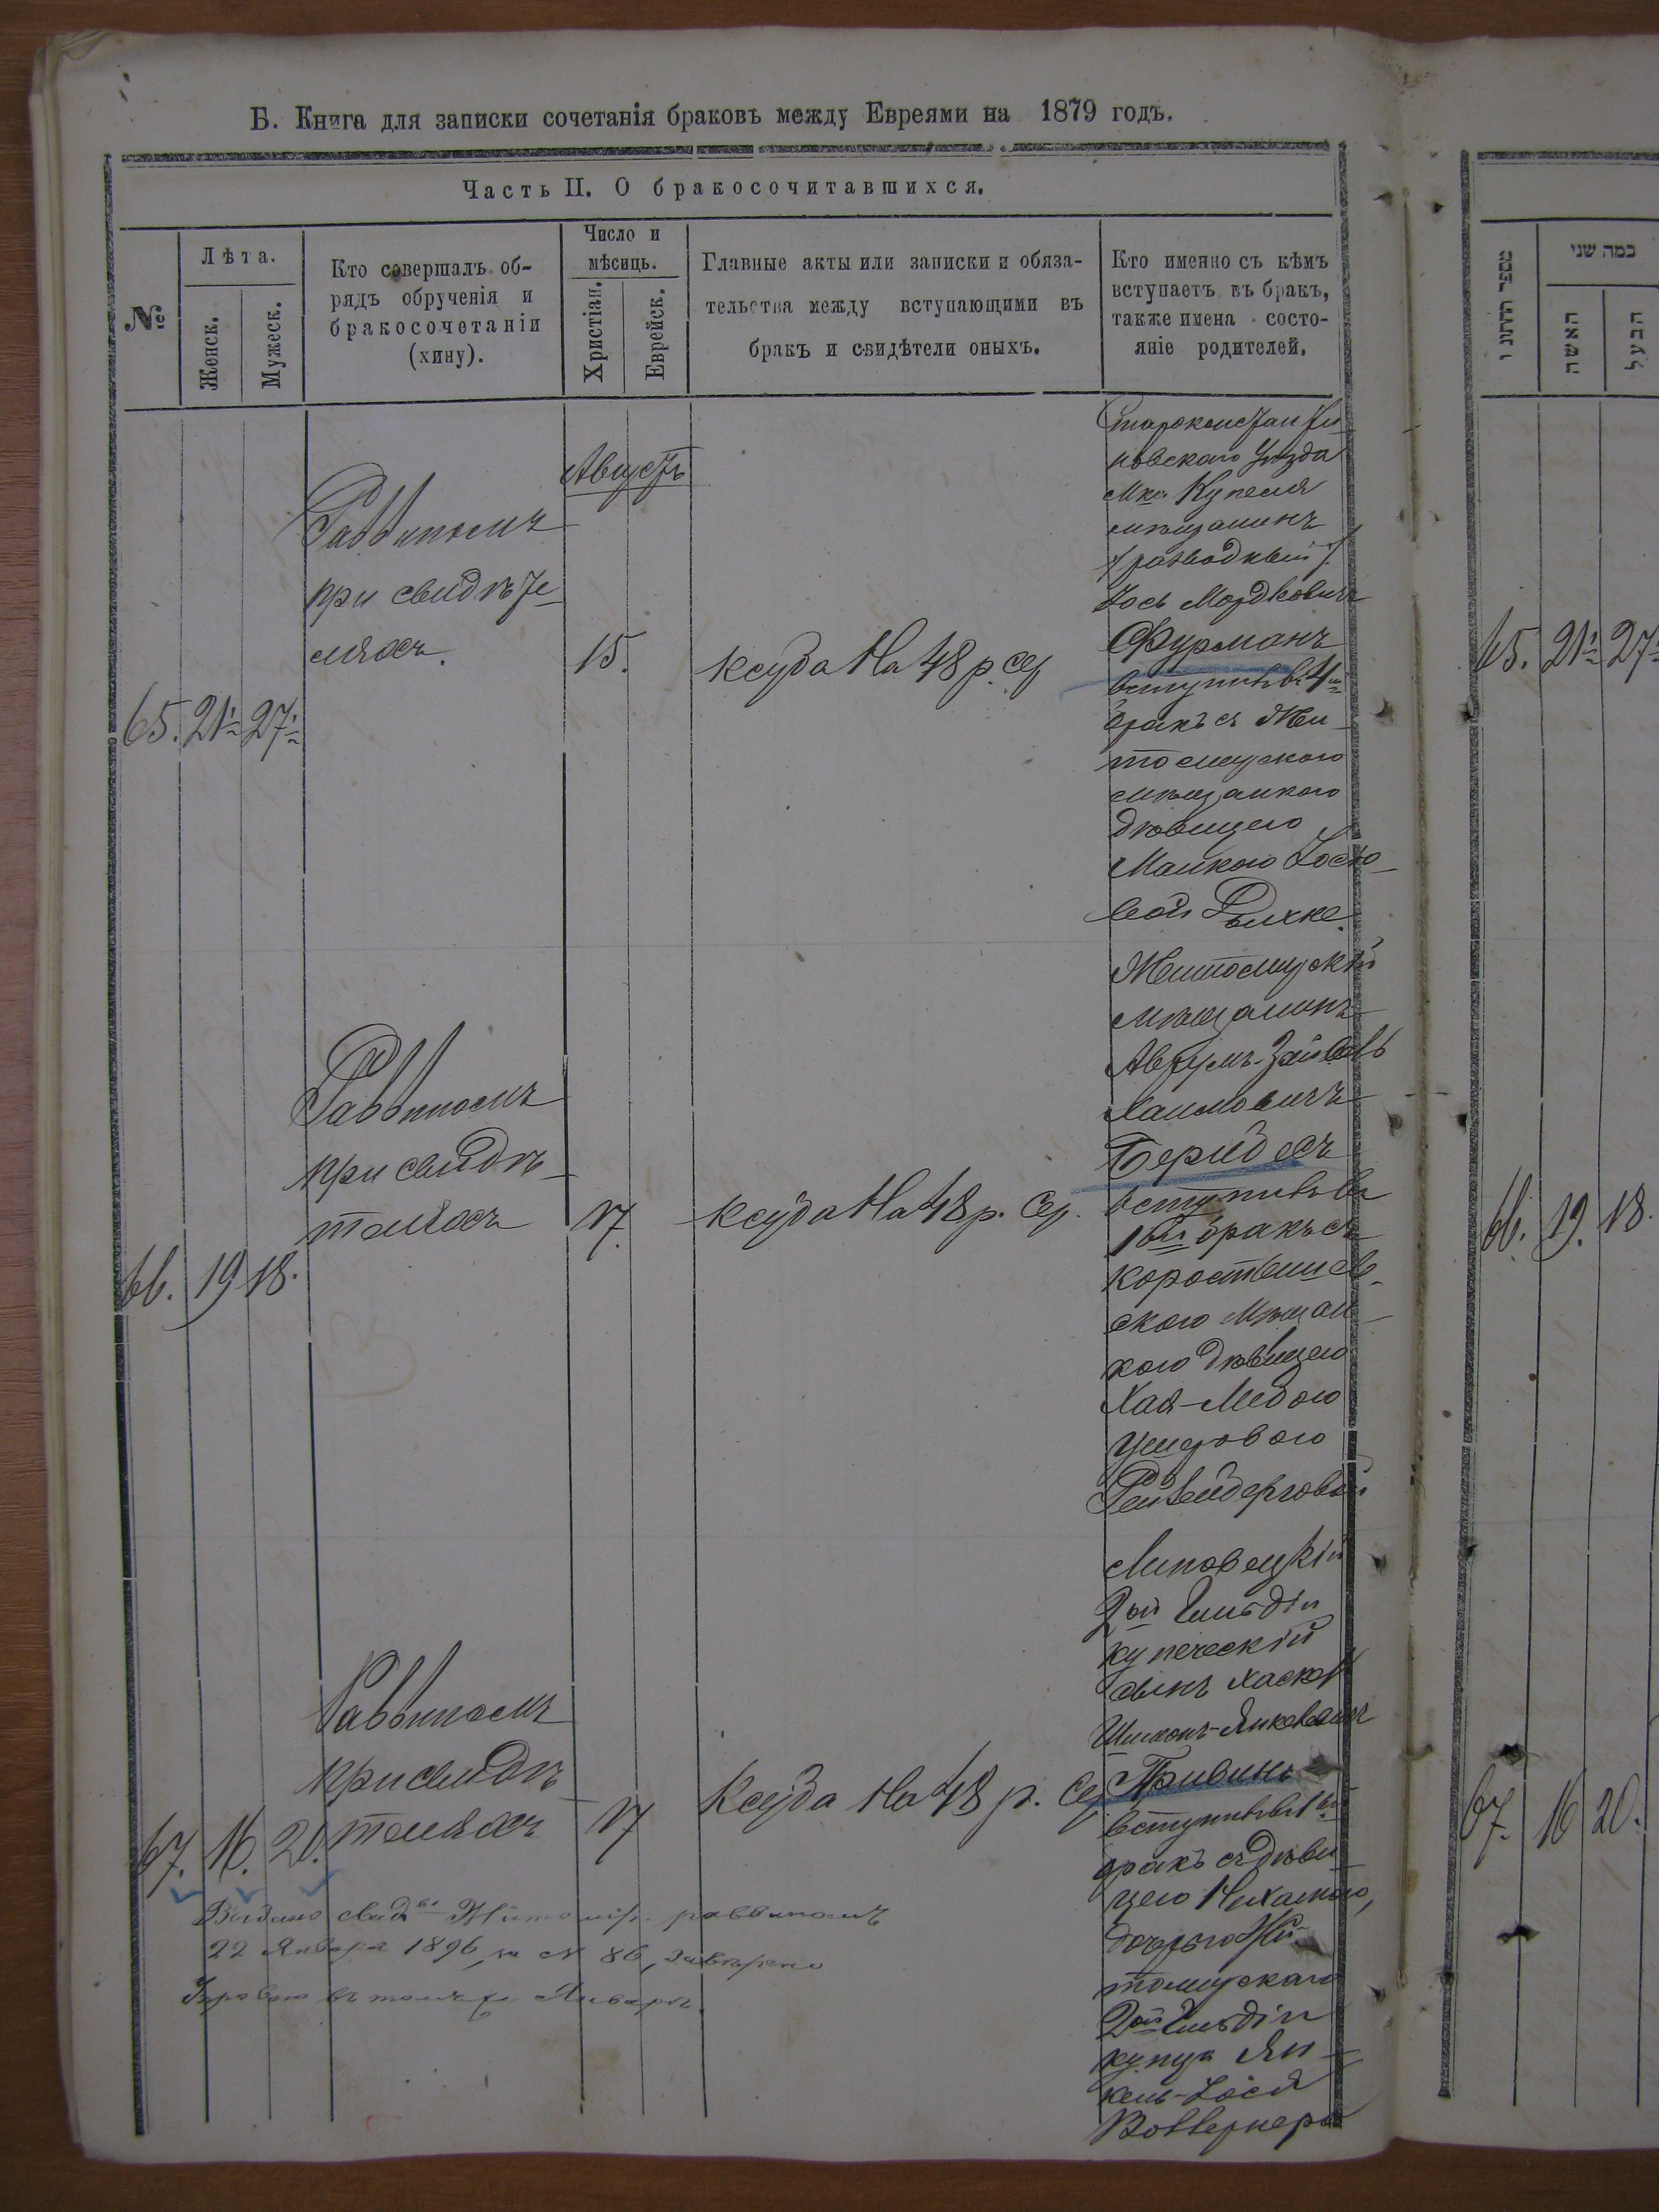 Б. Книга для записки сочетанія браковъ между Евреями на 1879 годъ.
Часть II. О бракосочитавшихся.
№
Лѣта.
Женск.
Мужеск.
Кто совершалъ об-
рядъ обрученія и
бракосочетаніи
(хину).
Число и
мѣсяць.
Христіан.
Еврейск.
Главные акты или записки и обяза-
тельства между вступающими въ
бракъ и свидѣтели оныхъ.
Кто именно съ кѣмъ
вступаетъ въ бракъ,
также имена состо-
яніе родителей.
Августъ
65. 21 27
Раввиномъ
при свидѣте-
ляхъ.
15.
ксуба На 48 р. сер
Староконстанти
новскаго уѣзда
мка Купеля
мѣщанинъ
/разводный/
Іось Мордковичъ
Фурманъ
вступилъ въ
бракъ съ Жи-
томирскою
мѣщанкою
дѣвицею
Манкою
66. 19 18.
Раввиномъ
при свидѣ-
теляхъ
17.
ксуба На 48 р. Сер.
Житомирскій
мѣщанинъ
Аврумъ-Зейвель
Хаимовичъ
Беридесъ
вступилъ въ
1й бракъ съ
Коростишев-
скою мѣщан-
кою дѣвицею
Хая-Медою
67. 16. 20.
Раввиномъ
при свидѣ-
теляхъ
17
Ксуба На 48 р. Сер
Липовецкій
2ой Гильдіи
купеческій
сынъ Хаскель
Шимонъ-Янкелевичъ
Тривинъ
вступилъ въ 1й
бракъ съ дѣви-
цею
дочерью Жи-
томирскаго
2ой Гильдіи
купца Ян-
кель-Іося
Выдано свид Житомір. раввиномъ
22 Января 1896, за № 86, завѣрено
въ томъ же Январѣ.
מספר החתונ ו
כמה שני
האשה
הבעל
65. 21 27
66. 19. 18.
67. 16 20.